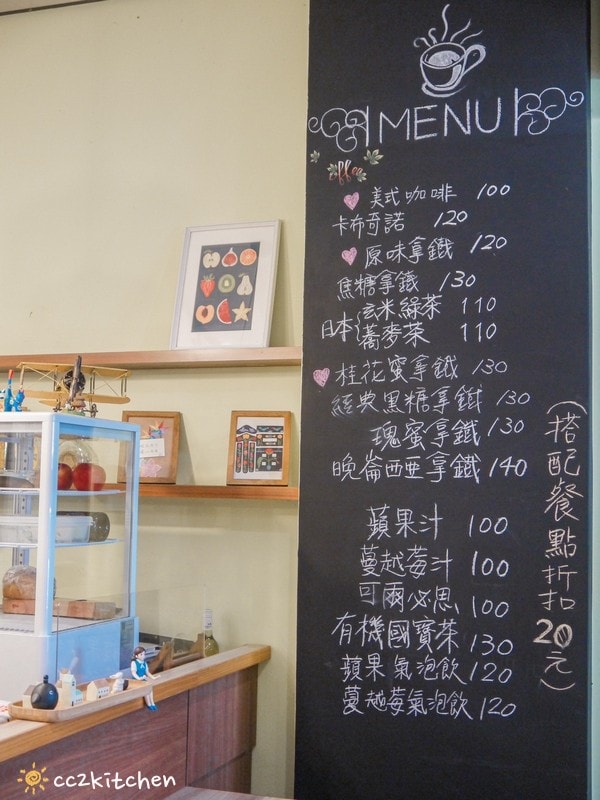 MENU
Coffee
美式咖啡 100
卡布奇諾 120
原味拿鐵 120
焦糖拿鐵 130
日本 玄米綠茶 110
蕎麥茶 110
桂花蜜拿鐵 130
經典黑糖拿鐵 130
瑰蜜拿鐵 130
晚崙西亞拿鐵 140
蘋果汁 100
蔓越莓汁 100
可爾必思 100
有機國寶茶 130
蘋果氣泡飲 120
蔓越莓氣泡飲 120
(搭配餐點折扣20元)
cc2kitchen